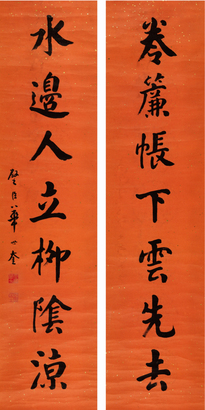 卷簾帳下雲先去
水邊人立柳陰涼
華世奎